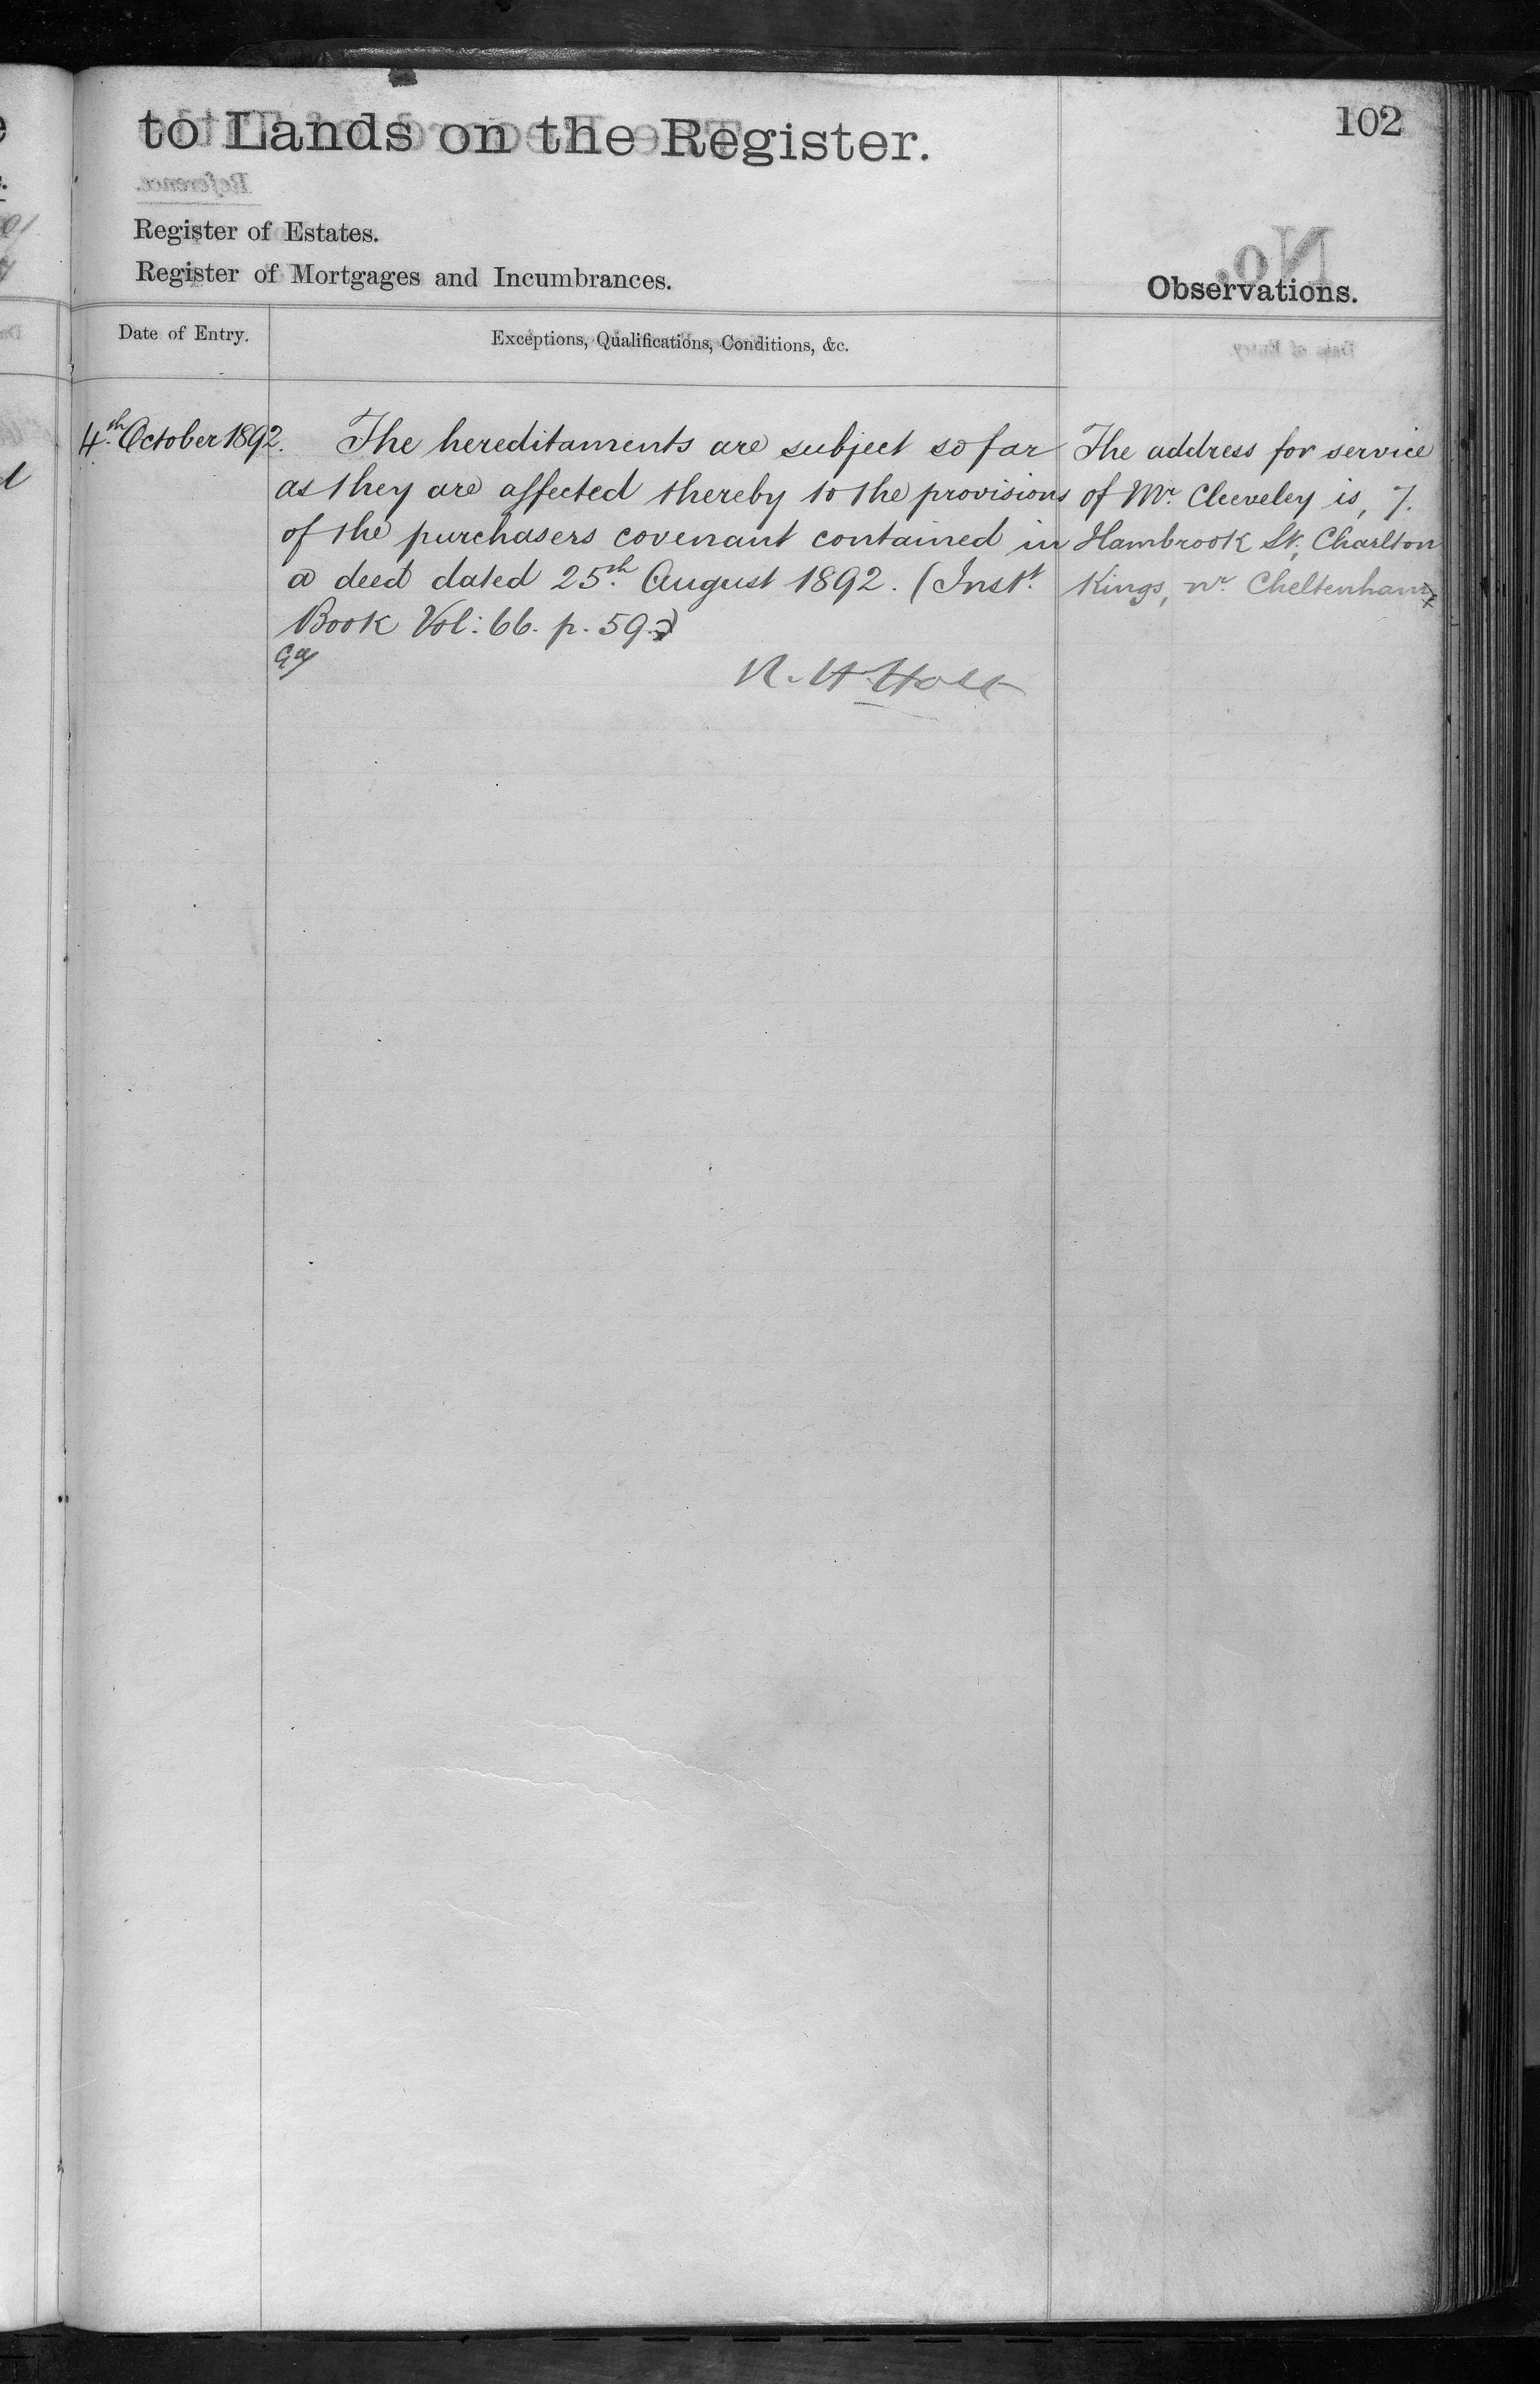 to Lands on the Register.
102
Register of Estates.
Register of Mortgages and Incumbrances.
Observations.
Date of Entry.
Exceptions, Qualifications, Conditions, &c.
4th October 1892.
The hereditaments are subject so far
as they are affected thereby to the provisions
of the purchasers covenant contained in
a deed dated 25th August 1892. (Inst
Book Vol: 66. p. 59.)
R. H. Holt
The address for service
of Mr. Cleeveley is, 7.
Hambrook St, Charlton
Kings, nr. Cheltenham